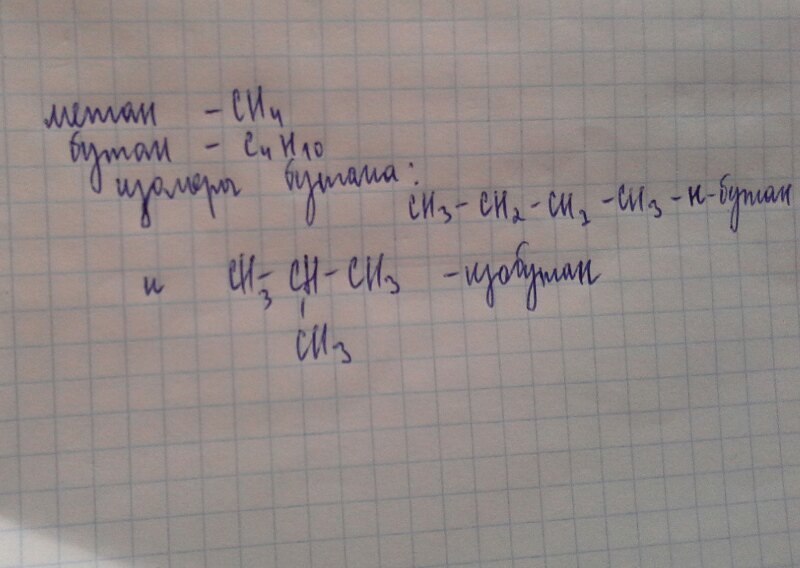 метан - CH4
бутан - C4H10
изомеры бутана:
CH3 - CH2 - CH2 - CH3 - н-бутан
и CH3 - CH - CH3 - изобутан
CH3